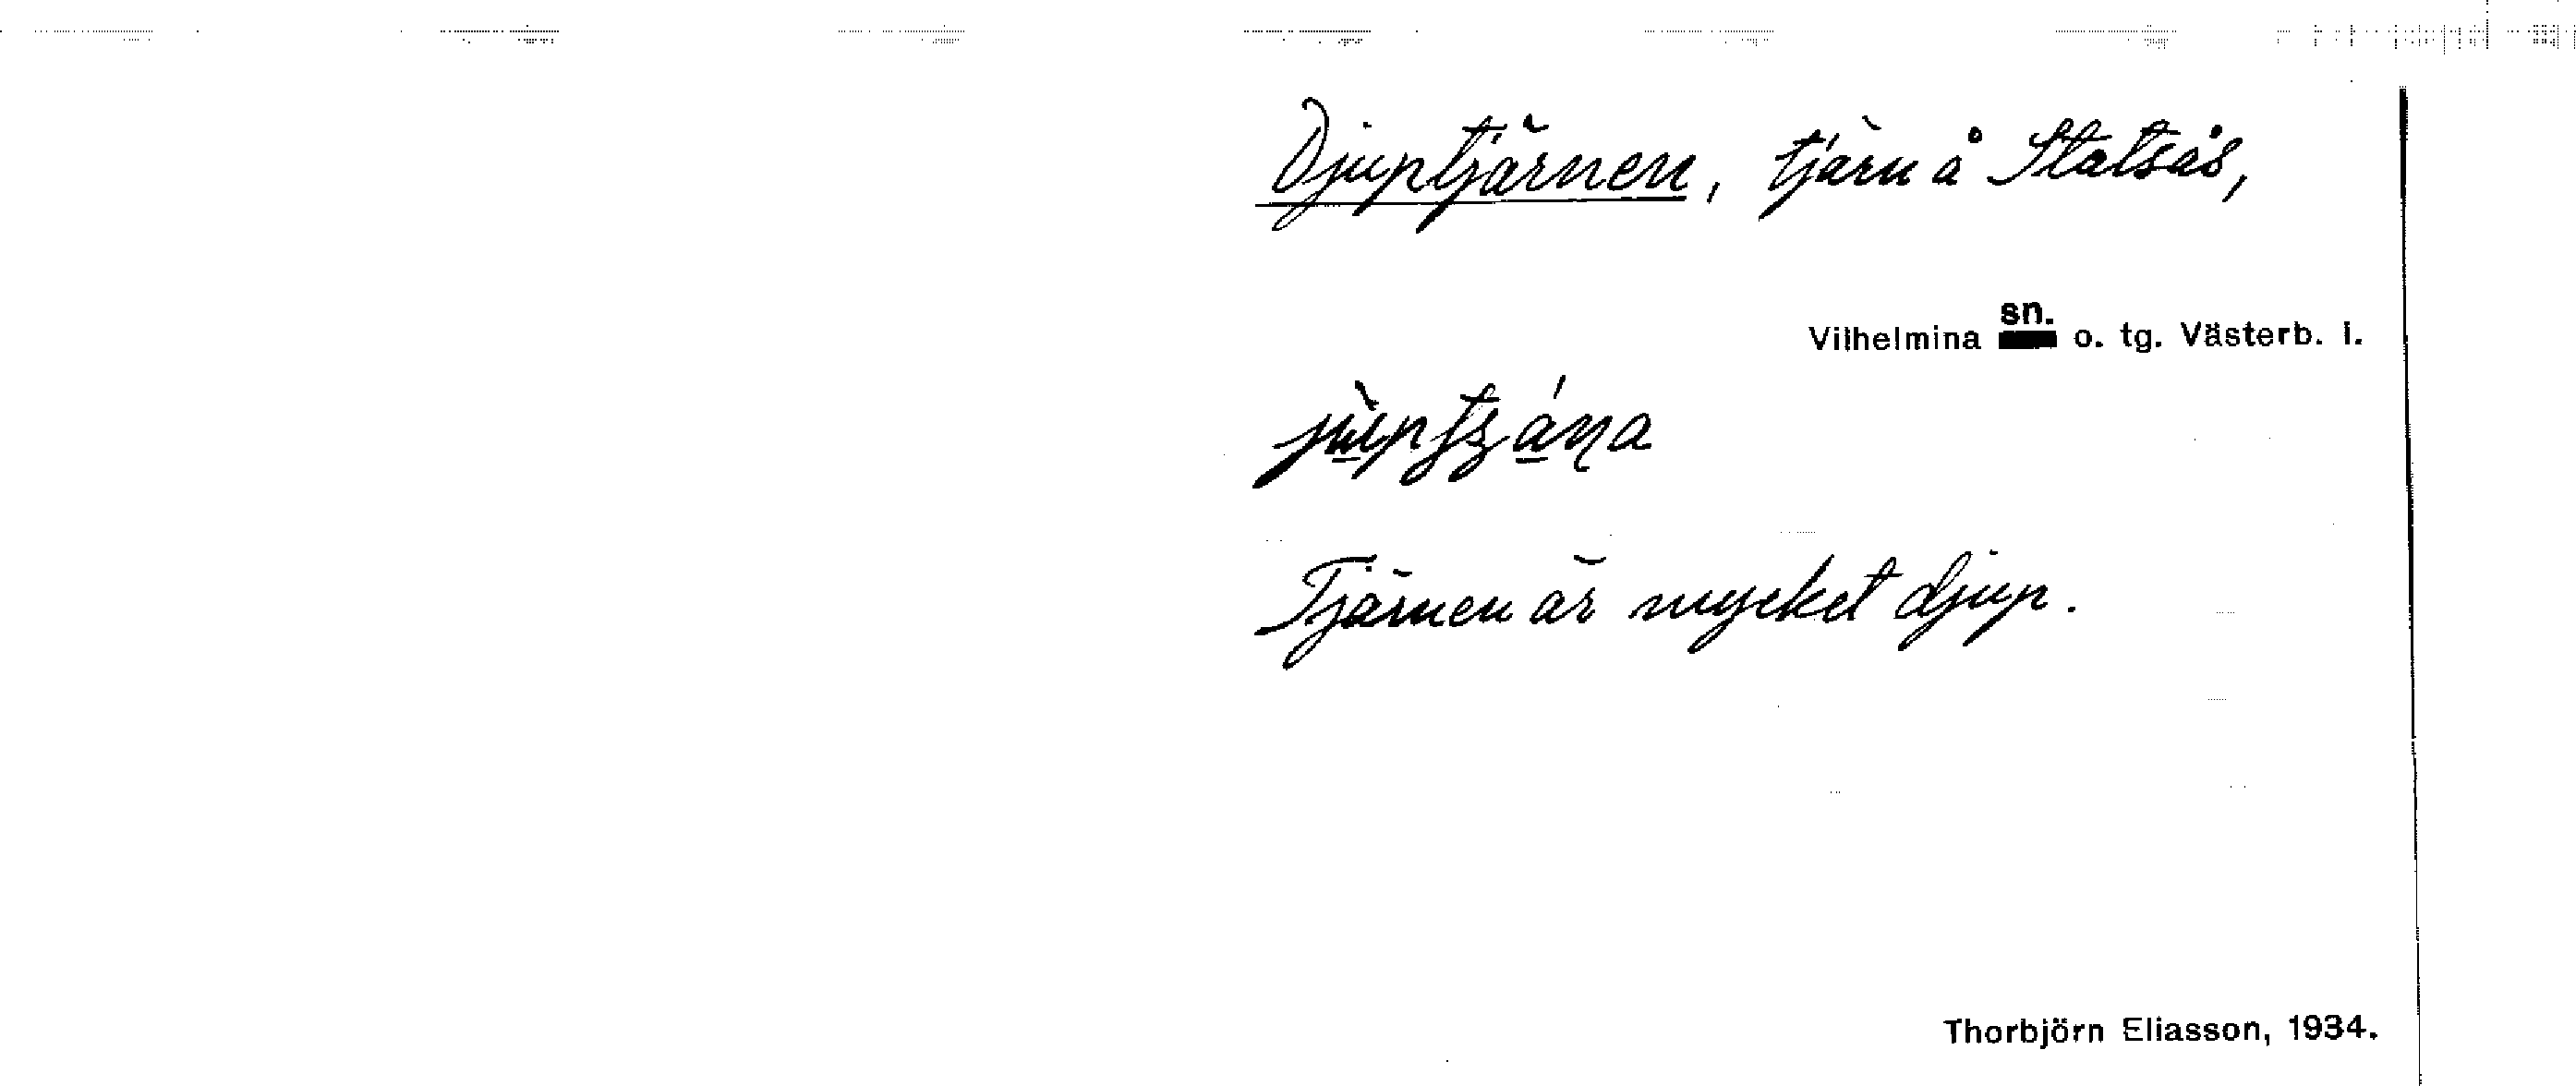 Djuptjärnen, tjärn å Statsås,
Vilhelmina sn. o. tg. Västerb. l.
Tjärnen är mycket djup.
Thorbjörn Eliasson, 1934.